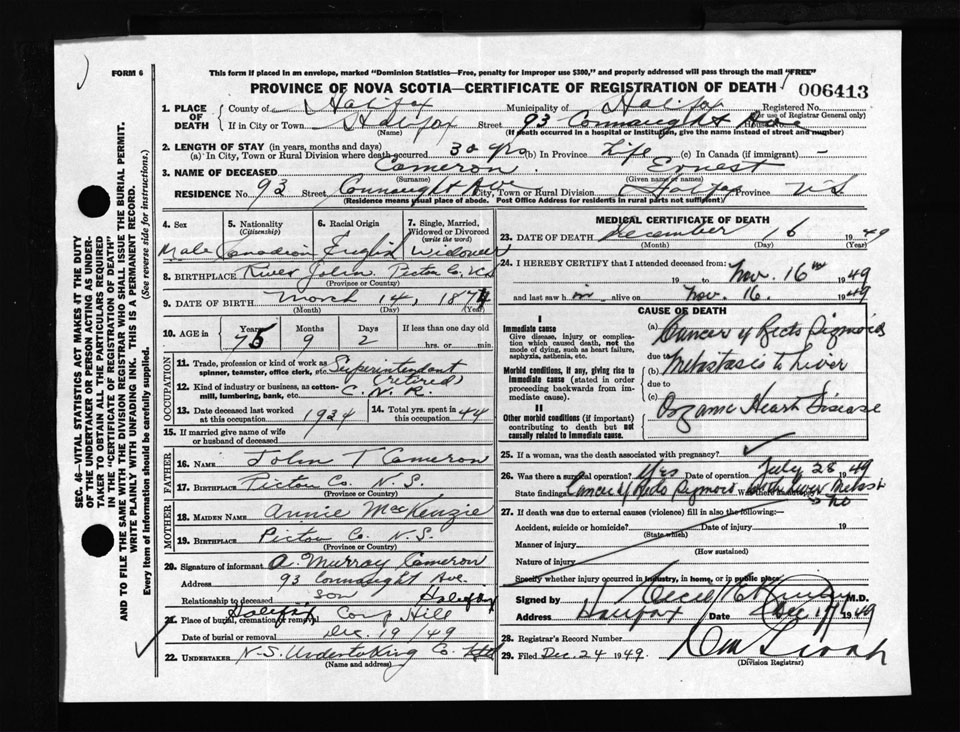 FORM 6
This form if placed in an envelope, marked "Dominion Statistics—Free, penalty for improper use $300," and properly addressed will pass through the mail "FREE"
PROVINCE OF NOVA SCOTIA—CERTIFICATE OF REGISTRATION OF DEATH 006413
1. PLACE OF DEATH
County of Halifax Municipality of Halifax Registered No.
(For use of Registrar General only)
If in City or Town Halifax Street 93 Connaught Ave
(Name) (If death occurred in a hospital or institution, give the name instead of street and number)
2. LENGTH OF STAY (in years, months and days)
(a) In City, Town or Rural Division where death occurred 30 yrs (b) In Province Life (c) In Canada (if immigrant) -
3. NAME OF DECEASED Cameron Ernest
(Surname) (Given name or names)
RESIDENCE No. 93 Street Connaught Ave City, Town or Rural Division Halifax Province N.S
(Residence means usual place of abode. Post Office Address for residents in rural parts not sufficient)
4. Sex Male
5. Nationality (Citizenship) Canadian
6. Racial Origin English
7. Single, Married, Widowed or Divorced (write the word) Widower
8. BIRTHPLACE River John, Pictou Co. N.S
(Province or Country)
9. DATE OF BIRTH March 14, 1874
(Month) (Day) (Year)
10. AGE in Years 75 Months 9 Days 2 If less than one day old
hrs. or min.
OCCUPATION
11. Trade, profession or kind of work as spinner, teamster, office clerk, etc. Superintendant
(retired)
12. Kind of industry or business, as cotton-mill, lumbering, bank, etc. C.N.R.
13. Date deceased last worked at this occupation 1934
14. Total yrs. spent in this occupation 44
15. If married give name of wife or husband of deceased
FATHER
16. NAME John T Cameron
17. BIRTHPLACE Pictou Co. N.S.
(Province or Country)
MOTHER
18. MAIDEN NAME Annie MacKenzie
19. BIRTHPLACE Pictou Co. N.S.
(Province or Country)
20. Signature of informant A. Murray Cameron
Address 93 Connaught Ave. Halifax
Relationship to deceased son
21. Place of burial, cremation or removal Halifax Camp Hill
Date of burial or removal Dec. 19/49
22. UNDERTAKER N.S. Undertaking Co. Ltd
(Name and address)
MEDICAL CERTIFICATE OF DEATH
23. DATE OF DEATH December 16 1949
(Month) (Day) (Year)
24. I HEREBY CERTIFY that I attended deceased from:
19 to Nov. 16th 1949
and last saw him alive on Nov. 16. 1949
CAUSE OF DEATH
I
Immediate cause
Give disease, injury or complication which caused death, not the mode of dying, such as heart failure, asphyxia, asthenia, etc.
(a) Cancer of Recto Sigmoid
due to
Morbid conditions, if any, giving rise to immediate cause (stated in order proceeding backwards from immediate cause).
(b) Metastasis to Liver
due to
(c)
II
Other morbid conditions (if important) contributing to death but not causally related to immediate cause.
Organic Heart Disease
25. If a woman, was the death associated with pregnancy?
26. Was there a surgical operation? Yes Date of operation July 28 1949
State findings Cancer of Recto Sigmoid with liver Metast
27. If death was due to external causes (violence) fill in also the following:—
Accident, suicide or homicide? Date of injury 19
(State which)
Manner of injury
(How sustained)
Nature of injury
Specify whether injury occurred in industry, in home, or in public place
Signed by M.D.
Address Halifax Date Dec. 17 1949
28. Registrar's Record Number
29. Filed Dec. 24 1949.
(Division Registrar)
SEC. 46—VITAL STATISTICS ACT MAKES IT THE DUTY OF THE UNDERTAKER OR PERSON ACTING AS UNDERTAKER TO OBTAIN ALL THE PARTICULARS REQUIRED IN THE "CERTIFICATE OF REGISTRATION OF DEATH" AND TO FILE THE SAME WITH THE DIVISION REGISTRAR WHO SHALL ISSUE THE BURIAL PERMIT.
WRITE PLAINLY WITH UNFADING INK. THIS IS A PERMANENT RECORD.
Every item of information should be carefully supplied. (See reverse side for instructions.)